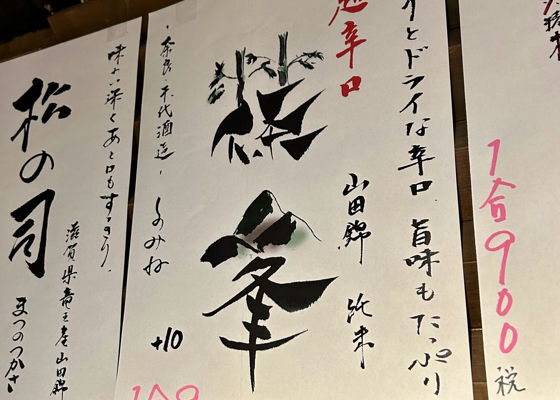 1合900税
りとドライな辛口 旨味もたっぷり
超辛口
山田錦 純米
篠峯
・奈良・千代酒造・ しのみね
+10
味わい深くあと口もすっきり
滋賀県竜王産山田錦
松の司
まつのつかさ